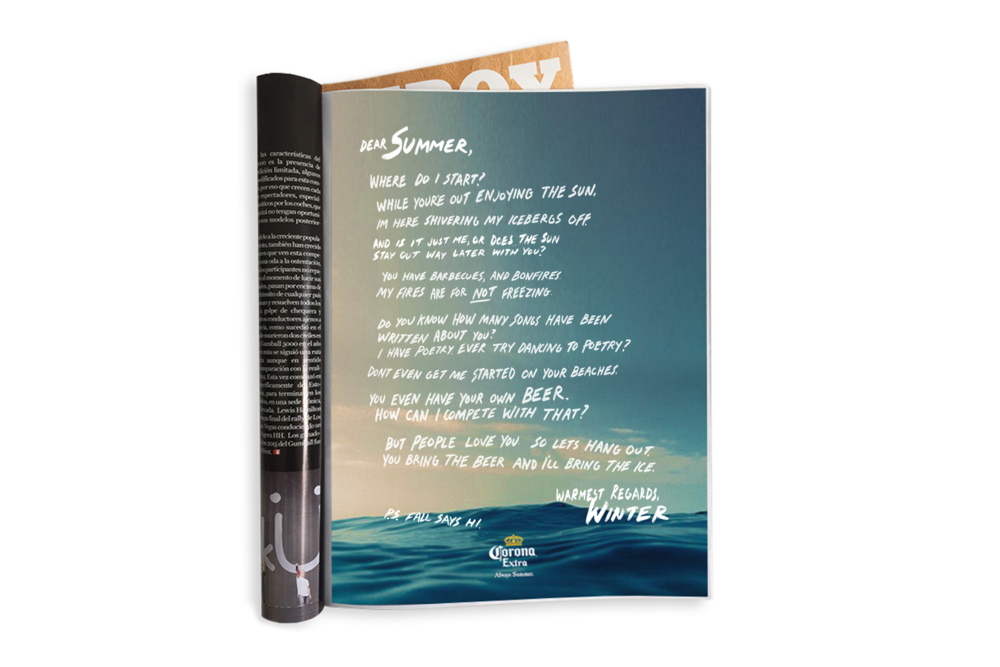 DEAR SUMMER,
WHERE DO I START?
WHILE YOU'RE OUT ENJOYING THE SUN.
IM HERE SHIVERING MY ICEBERGS OFF.
AND IS IT JUST ME, OR DOES THE SUN
STAY OUT WAY LATER WITH YOU?
YOU HAVE BARBECUES, AND BONFIRES.
MY FIRES ARE FOR NOT FREEZING.
DO YOU KNOW HOW MANY SONGS HAVE BEEN
WRITTEN ABOUT YOU?
I HAVE POETRY. EVER TRY DANCING TO POETRY?
DONT EVEN GET ME STARTED ON YOUR BEACHES.
YOU EVEN HAVE YOUR OWN BEER.
HOW CAN I COMPETE WITH THAT?
BUT PEOPLE LOVE YOU SO LETS HANG OUT.
YOU BRING THE BEER AND I'LL BRING THE ICE.
WARMEST REGARDS,
WINTER
P.S. FALL SAYS HI.
Corona
Extra
Always Summer.
las características del
es la presencia de
edición limitada, algunos
por eso que crecen cada
espectadores, especial
por los coches, que
no tengan oportuni
modelos posterior
a la creciente popula
también han crecido
que ven esta compe
una oda a la ostentación.
participantes no repa
al momento de lucir sus
pasan por encima de
de cualquier país
y resuelven todos los
golpe de chequera y
conductores ajenos a
como sucedió en el
murieron dos civiles en
Gumball 3000 en el año
más se siguió una ruta
aunque en sentido
comparación con
Esta vez comenzó en
de Esto
para terminar en los
en una sede icónica,
Lewis Hamilton
final del rally, de Los
Vegas conduciendo un
HH. Los
2015 del Gumball